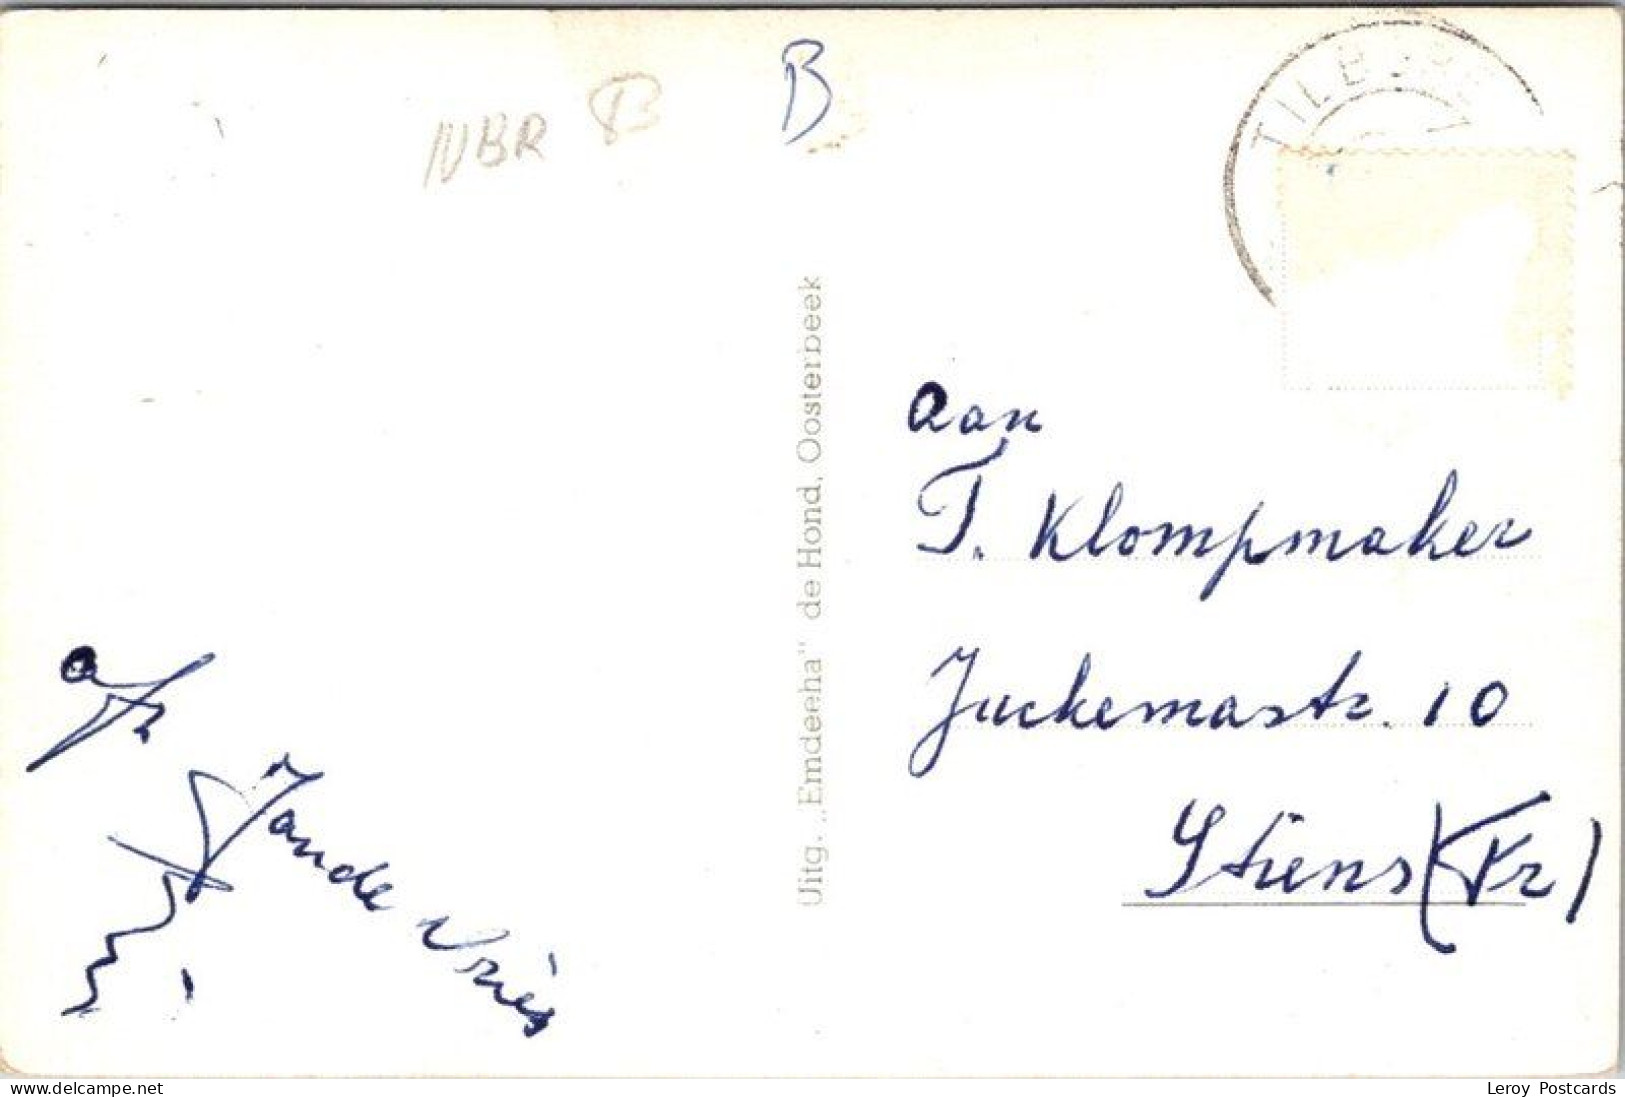 NBR B
B
TILBURG
Uitg. „Emdeeha" de Hond, Oosterbeek
aan
T. Klompmaker
Juckemastr. 10
Stiens (Fr)
afz
Jan de Vries
www.delcampe.net
Leroy Postcards